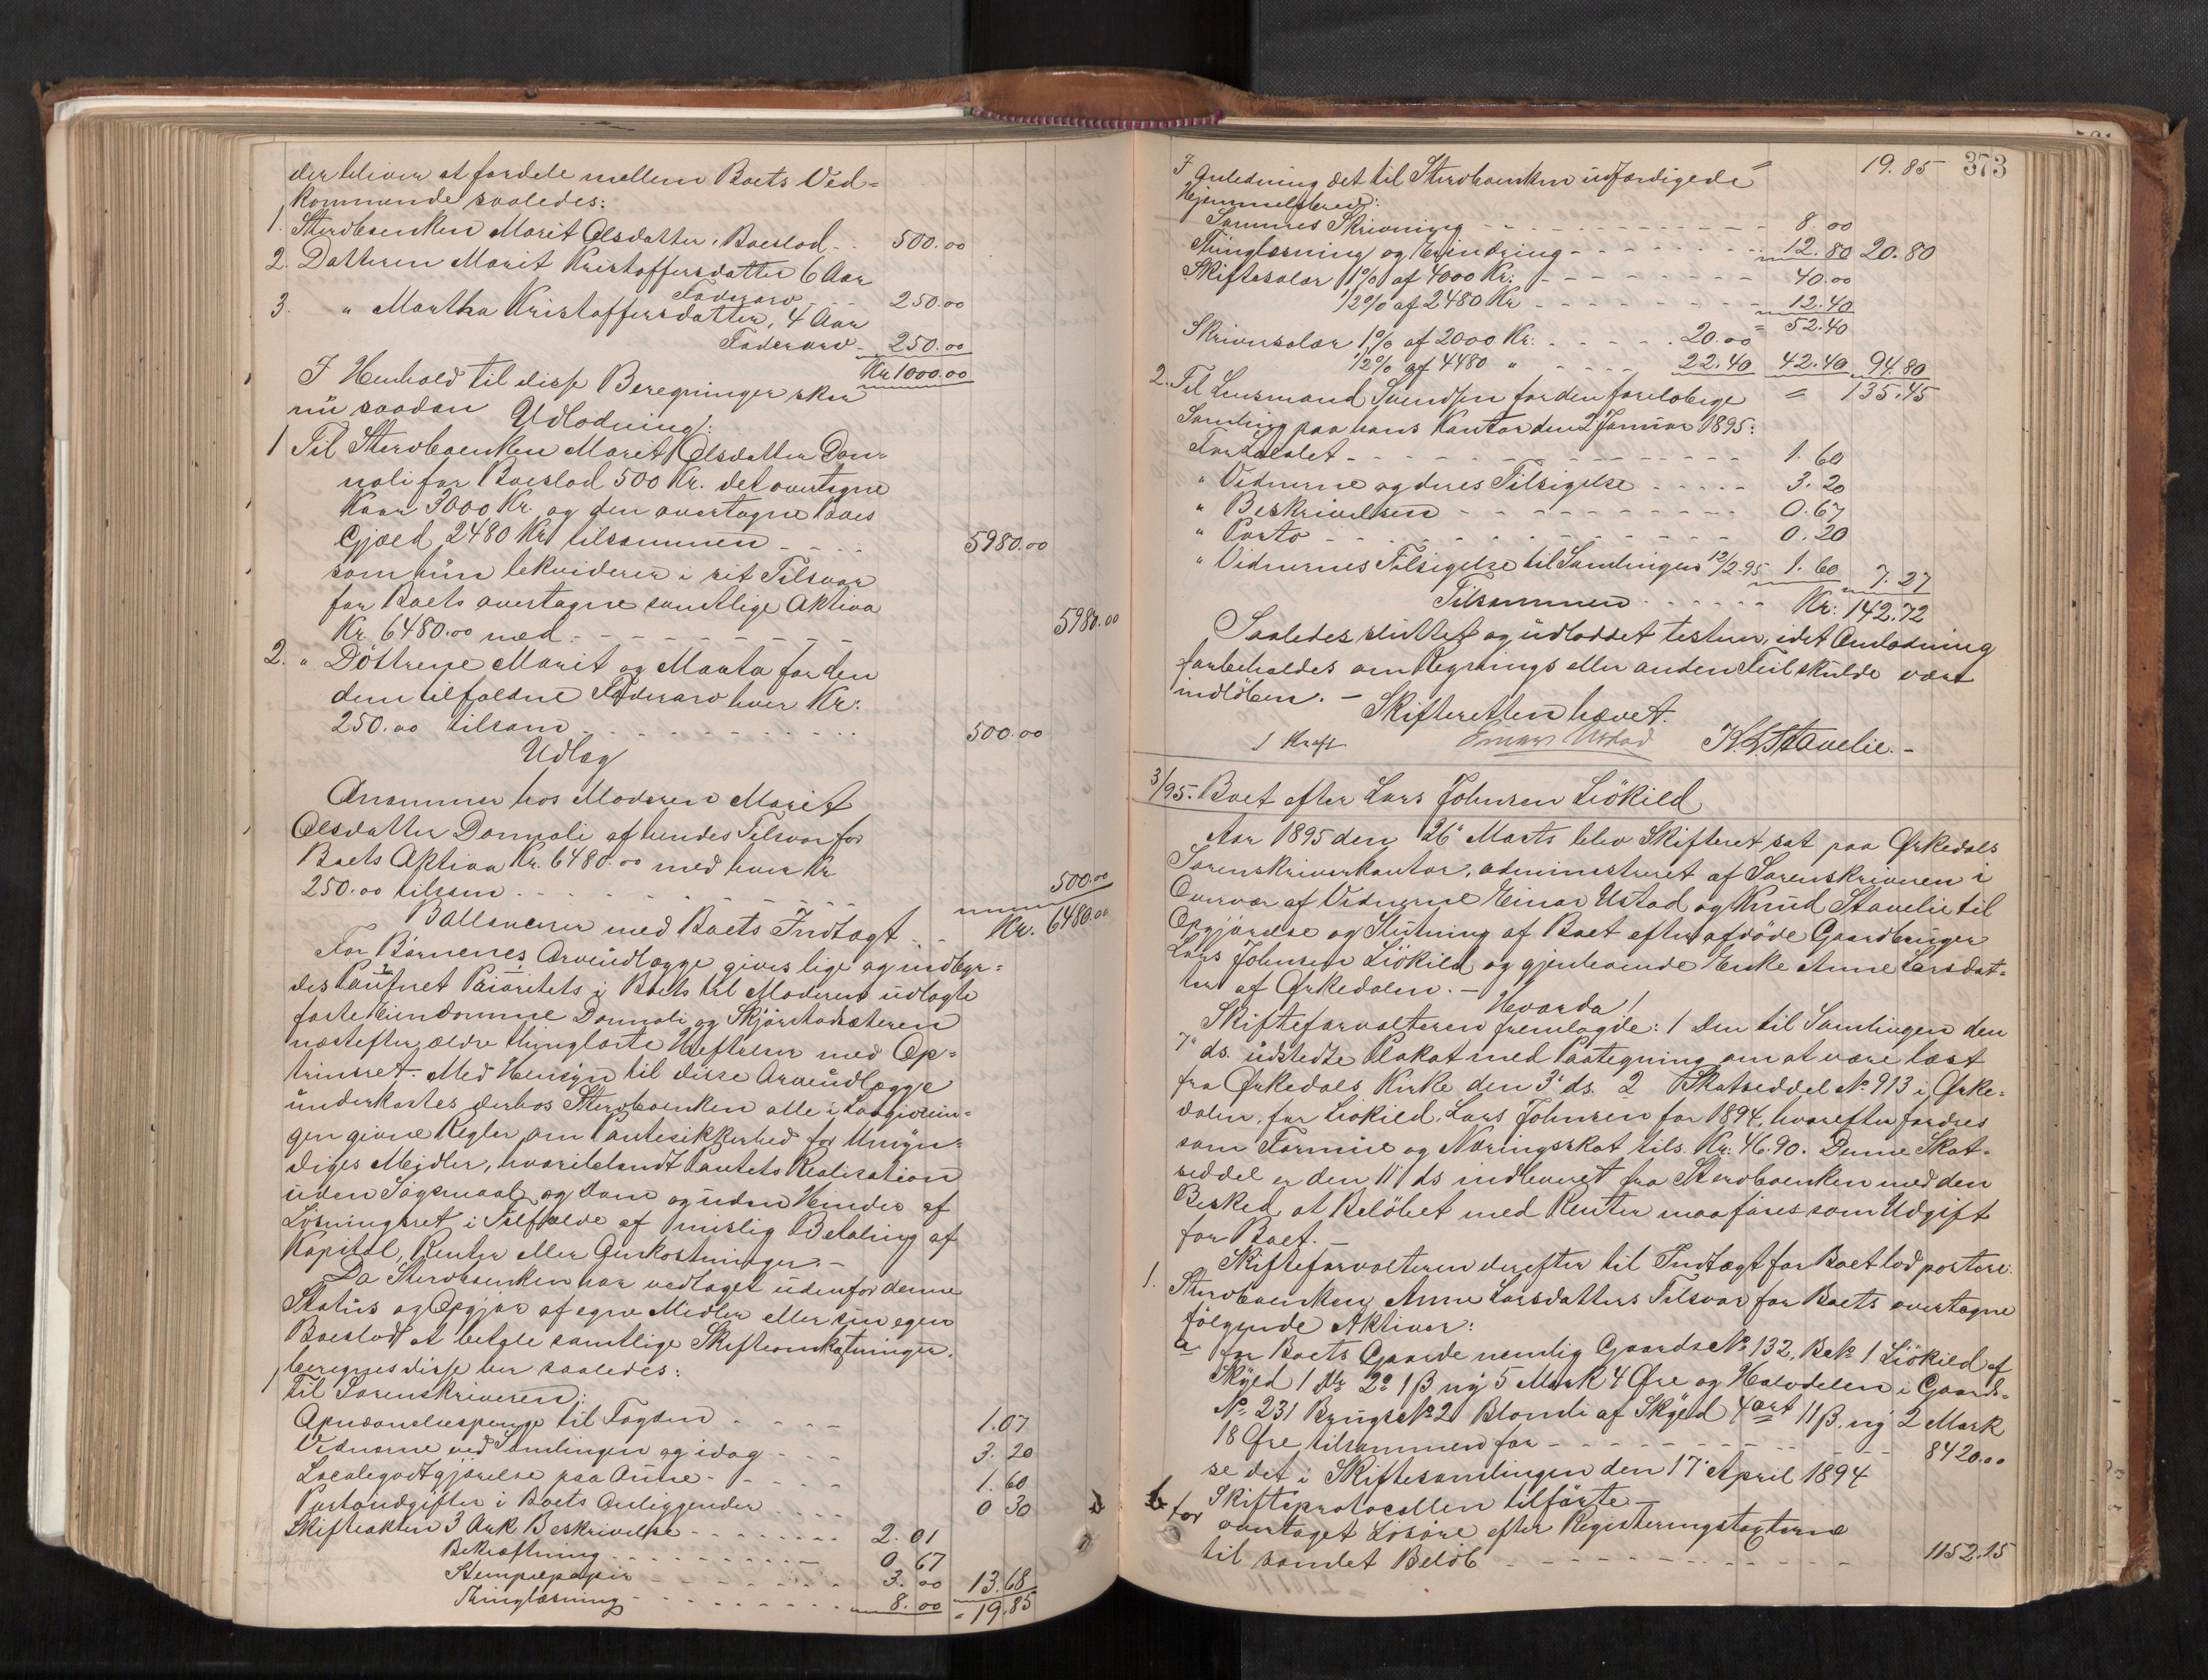 der bliver at fordele mellem Boets Ved=
kommende saaledes:
1. Stervboenken Marit Olsdatter, Boeslod - 500.00
2. Datteren Marit Kristoffersdatter 6 Aar
Faderarv - 250.00
3. " Martha Kristoffersdatter, 4 Aar
Faderarv - 250.00
Kr 1000.00
I Henhold til disse Beregninger sker
nu saadan Udlodning:
1 Til Stervboenken Marit Olsdatter Don=
noli for Boeslod 500 Kr. det overtagne
Kaar 3000 Kr. og den overtagne Boes
Gjæld 2480 Kr tilsammen - - - 5980.00
som hun likviderer i sit Tilsvar
for Boets overtagne samtlige Aktiva
Kr. 6480.00 med - - - 5980.00
2. " Döttrene Marit og Marta for den
dem tilfaldne Faderarv hver Kr.
250.00 tilsam - - - 500.00
Udlæg
Anammer hos Moderen Marit
Olsdatter Donnoli af hendes Tilsvar for
Boets Aktiva Kr. 6480.00 med hver Kr
250.00 tilsam - - - 500.00
Ballancerer med Boets Indtægt - - Kr. 6480.00
For Börnenes Arveudlægge gives lige og indbyr=
des Panteret Prioritets i Boets til Moderen udlagte
faste Eiendomme Donnoli og Skjörstadsæteren
næstefter ældre thinglæste Heftelser med Op=
trinsret. Med Hensyn til disse Arveudlægge
underkastes derhos Stervboenken alle i Lovgivnin=
gen givne Regler om Pantesikkerhed for Umyn=
diges Midler, hvoriblandt Pantets Realisation
uden Sögsmaal og Dom og uden Hinder af
Lösningsret i Tilfælde af mislig Betaling af
Kapital, Renter eller Omkostninger. -
Da Stervboenken har vedtaget udenfor denne
Status og Opgjör af egne Midler eller sin egen
Boeslod at betale samtlige Skifteomkostninger,
beregnes disse her saaledes:
1 Til Sorenskriveren:
til Fogden - - - - 1.07
Vidnerne ved Samlingen og idag - - - 3.20
Localegodtgjörelse paa - - - 1.60
Portoudgifter i Boets Anliggender - - - 0 30
Skifteakten 3 Ark Beskrivelse - - - 2.01
Bekræftning - - - 0.67
Stempelpapir - - - 3.00
Thinglæsning - - - 8.00 13.68
= 19.85
373
I Anledning det til Stervboenken udfærdigede = 19.85
Hjemmelsbrev:
Sammes Skrivning - - - 8.00
Thinglæsning og Erindring - - - 12.80 20.80
Skiftesalær 1% af 4000 Kr: - - - 40.00
1/2% af 2480 Kr - - - 12.40
= 52.40
Skriversalær 1% af 2000 Kr. - - - 20.00
1/2% af 4480 " - - - 22.40 42.40 94.80
= 135.45
2. Til Lensmand Svendsen for den forelobige
Samling paa hans Kontor den 2 Januar 1895:
For Localet - - - 1.60
" Vidnerne og deres Tilsigelse - - - 3.20
" Beskrivelsen - - - 0.67
" Porto - - - 0.20
" Vidnernes Tilsigelse til Samlingen 12/2 95 1.60 7.27
Tilsammen - - - Kr: 142.72
Saaledes sluttet og udloddet testerer, idet Omlodning
forbeholdes om Regnings eller anden Feil skulde være
indlöben. -
Skifteretten hævet.
J Kraft Einar Ustad K. L. Stavelie. -
3/95. Boet efter Lars Johnsen Liökild
Aar 1895 den 26' Marts blev Skifteret sat paa Ørkedals
Sorenskriverkontor, administreret af Sorenskriveren i
Overvær af Vidnerne Einar Ustad og Knud Stavelie til
Opgjörelse og Slutning af Boet efter afdöde Gaardbruger
Lars Johnsen Liökild og gjenlevende Enke Anne Larsdat=
ter af Ørkedalen. -
Hvorda!
Skifteforvalteren fremlagde: 1 Den til Samlingen den
7" ds. udstedte Plakat med Paategning om at være læst
fra Ørkedals Kirke den 3' ds. 2 Skatseddel No 913 i Ørke=
dalen, for Liökild, Lars Johnsen for 1894, hvorefter fordres
som Formue og Næringsskat tils. Kr. 46.90. Denne Skat=
seddel er den 11' ds indleveret fra Stervboenken med den
Besked, at Belöbet med Renter maa föres som Udgift
for Boet. -
Skifteforvalteren derefter til Indtægt for Boet lod portere:
1. Stervboenken Anne Larsdatters Tilsvar for Boets overtagne
fölgende Aktiver:
a for Boets Gaarde nemlig Gaards No 132, Bek 1 Liökild af
Skyld 1 Dlr 2o 1 β ny 5 Mark 4 Øre og Halvdelen i Gaards=
No 231 Brugs No 2 Blomli af Skyld 4 ort 11 β. ny 2 Mark
18 Øre tilsammen for - - - 8420.00
se det i Skiftesamlingen den 17' April 1894
Skifteprotocollen tilförte -
b for overtaget Lösöre efter Registeringstaxterne
til samlet Belöb - - - 1152.15